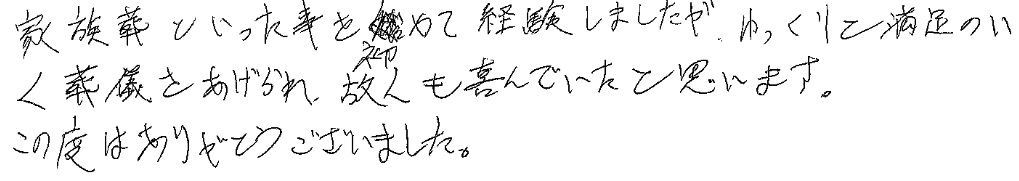 家族葬といった事を初めて経験しましたが、ゆっくりと満足のい
く葬儀をあげられ、故人も喜んでいたと思います。
この度はありがとうございました。